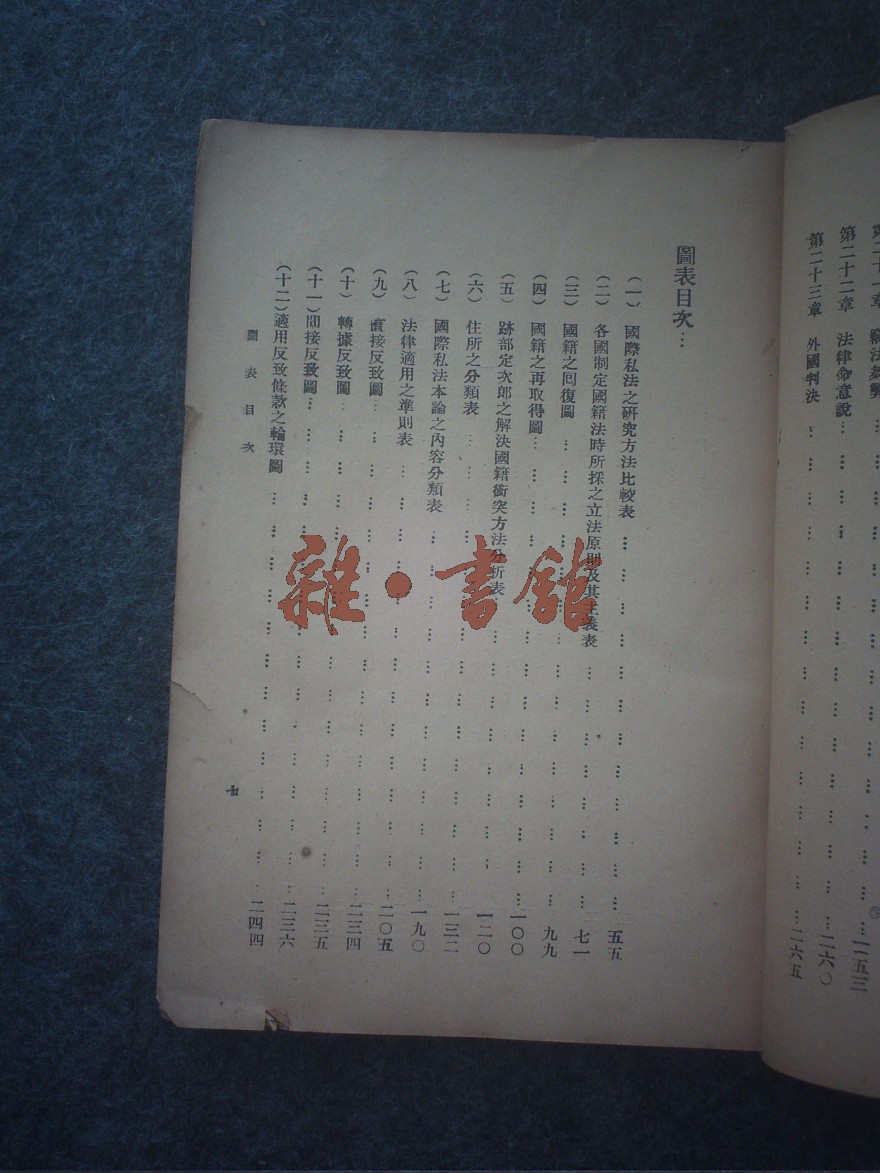 第二十一章 竊法舞弊 … … … 二五三
第二十二章 法律命意說 … … … 二六〇
第二十三章 外國判決 … … … 二六五
圖表目次…
（一）國際私法之研究方法比較表 … … … 五五
（二）各國制定國籍法時所採之立法原則及其主義表 … … … 七一
（三）國籍之回復圖 … … … 九九
（四）國籍之再取得圖 … … … 一〇〇
（五）跡部定次郎之解決國籍衝突方法分析表 … … … 一二〇
（六）住所之分類表 … … … 一三二
（七）國際私法本論之內容分類表 … … … 一九〇
（八）法律適用之準則表 … … … 二〇五
（九）直接反致圖 … … … 二三四
（十）轉據反致圖 … … … 二三五
（十一）間接反致圖 … … … 二三六
（十二）適用反致條款之輪環圖 … … … 二四四
圖表目次
七
雜·書館